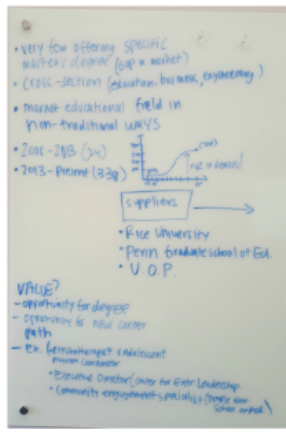 • very few offering specific
masters degree (gap in market)
• cross-section (education, business, engineering)
• market educational field in
non-traditional ways
• 2000-2013 (24)
• 2013-Present (338)
rise in demand
suppliers
• Rice University
• Penn Graduate School of Ed.
• U.O.P.
VALUE?
- opportunity for degree
- opportunity for new career
path
- ex. adolescent
• Executive Director Center for Entr. Leadership
• Community engagement specialist